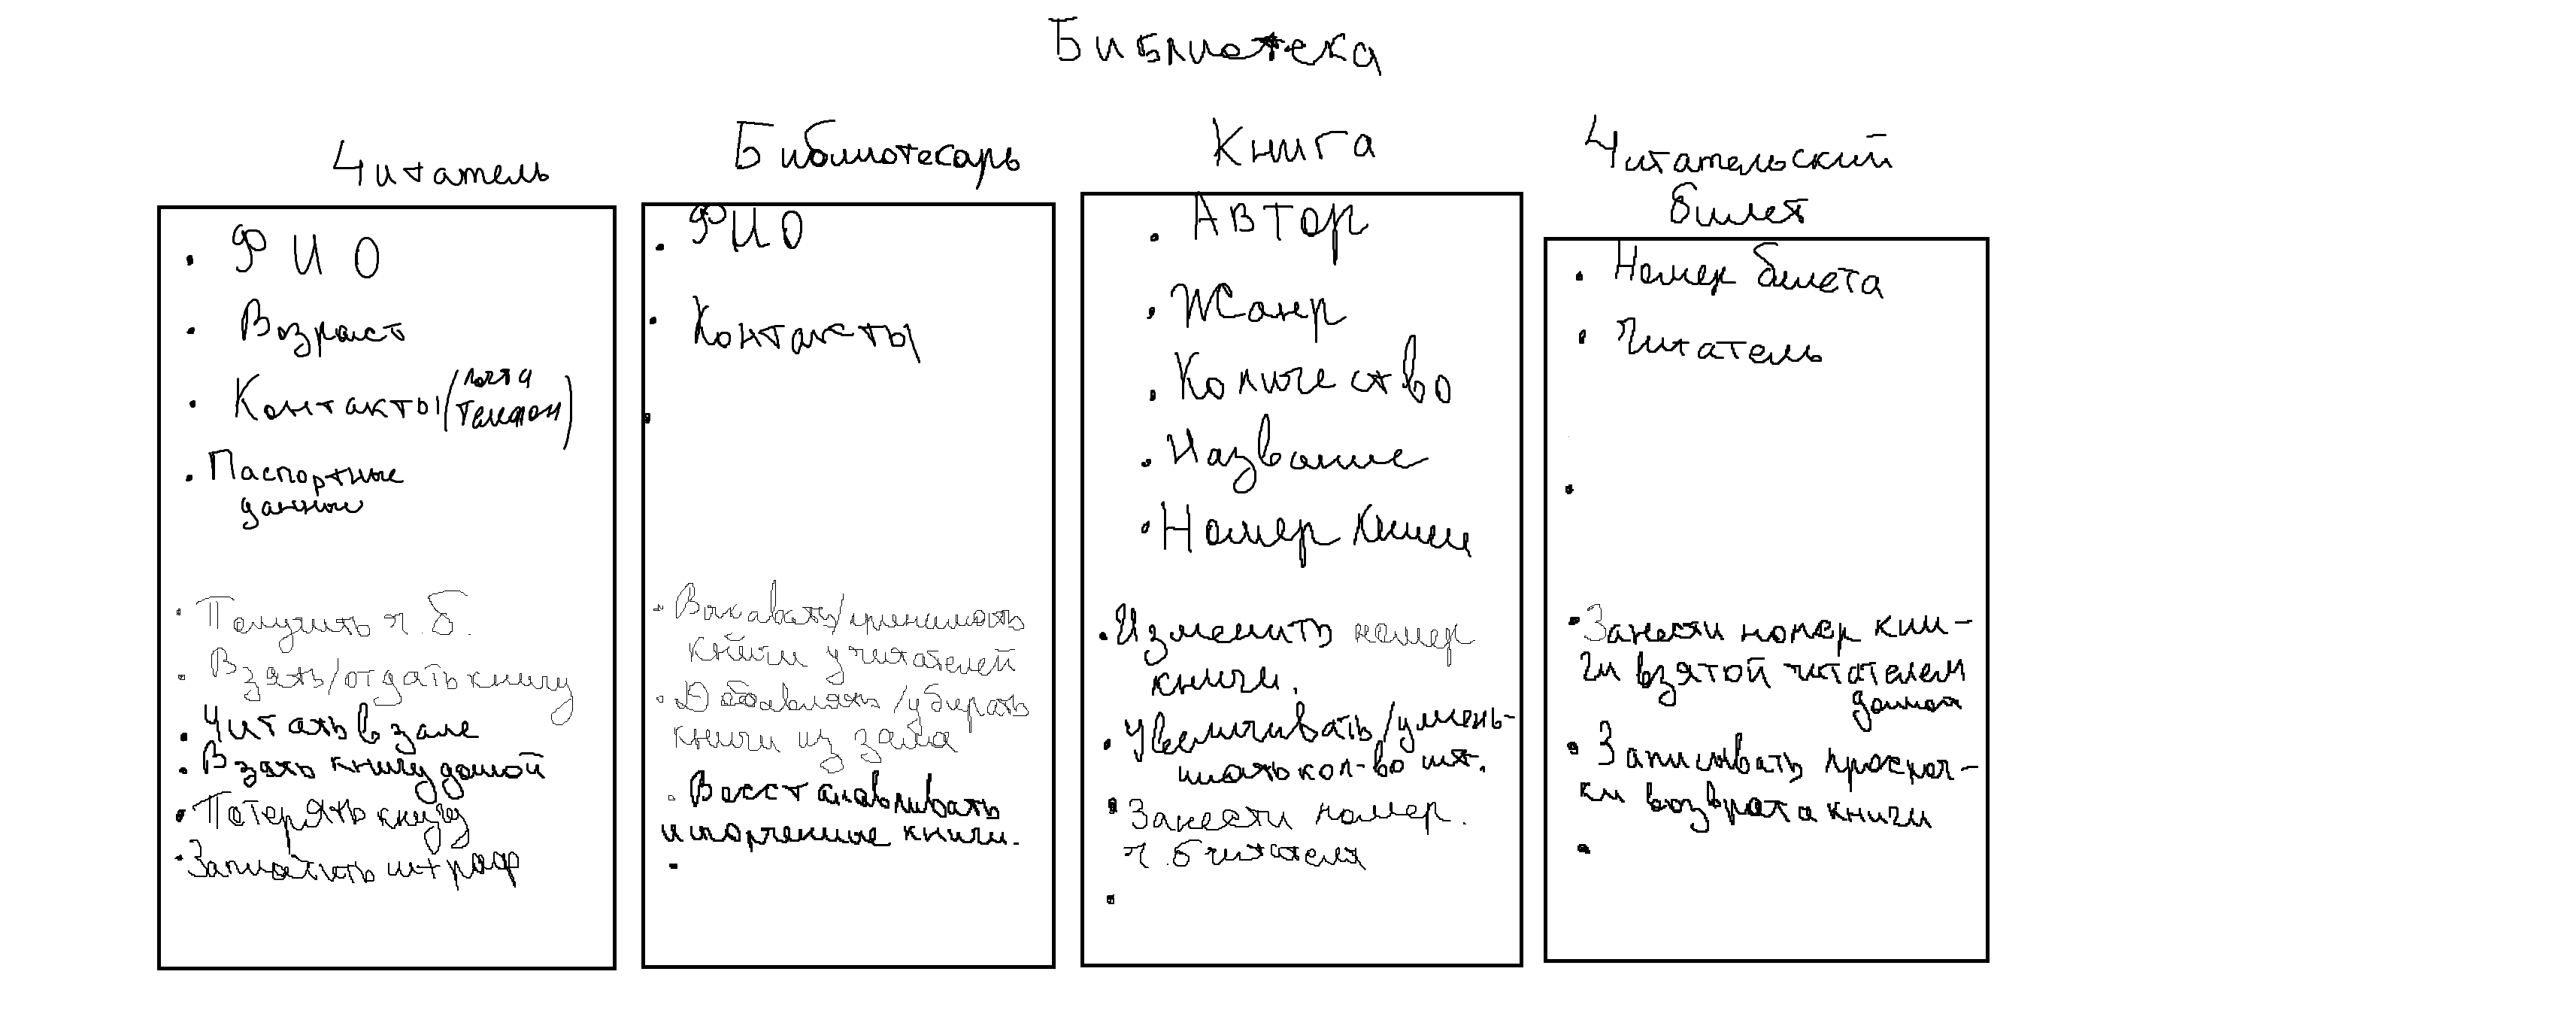 Библиотека
Читатель
• ФИО
• Возраст
• Контакты (почта
телефон)
• Паспортные
данные
• Получить ч.б.
• Взять/отдать книгу
• Читать в зале
• Взять книгу домой
• Потерять книгу
• Заплатить штраф
Библиотекарь
• ФИО
• Контакты
•
• Выдавать/принимать
книги у читателей
• Добавлять/убирать
книги из зала
• Восстанавливать
испорченные книги.
•
Книга
• Автор
• Жанр
• Количество
• Название
• Номер книги
• Изменить номер
книги.
• Увеличивать/умень-
шать кол-во шт.
• Занести номер.
ч.б читателя
•
Читательский
билет
• Номер билета
• Читатель
•
• Занести номер кни-
ги взятой читателем
домой
• Записывать просроч-
ки возврата книги
•